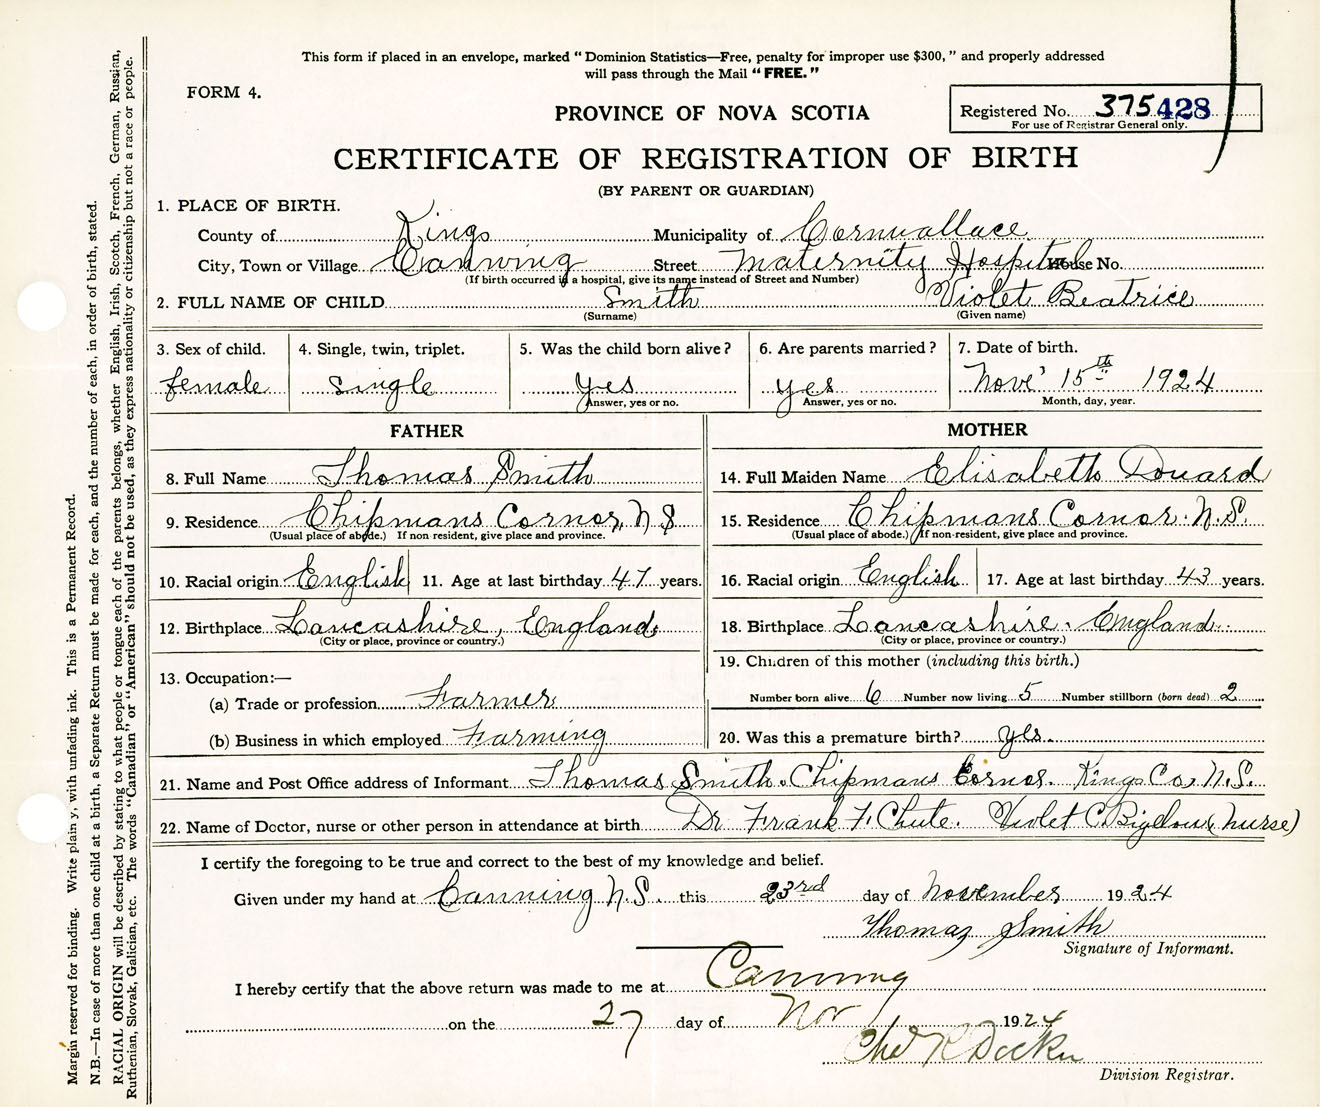 This form if placed in an envelope, marked “Dominion Statistics—Free, penalty for improper use $300,” and properly addressed
will pass through the Mail “FREE.”
FORM 4.
PROVINCE OF NOVA SCOTIA
Registered No. 375428
For use of Registrar General only.
CERTIFICATE OF REGISTRATION OF BIRTH
(BY PARENT OR GUARDIAN)
1. PLACE OF BIRTH.
County of Kings Municipality of Cornwallace
City, Town or Village Canning Street Maternity Hospital House No.
(If birth occurred in a hospital, give its name instead of Street and Number)
2. FULL NAME OF CHILD Smith Violet Beatrice
(Surname) (Given name)
3. Sex of child. 4. Single, twin, triplet. 5. Was the child born alive? 6. Are parents married? 7. Date of birth.
female single yes yes Nov' 15th 1924
Answer, yes or no. Answer, yes or no. Month, day, year.
FATHER MOTHER
8. Full Name Thomas Smith 14. Full Maiden Name Elisabeth Douard
9. Residence Chipmans Cornor, N S 15. Residence Chipmans Cornor. N.S.
(Usual place of abode.) If non resident, give place and province. (Usual place of abode.) If non-resident, give place and province.
10. Racial origin English 11. Age at last birthday 47 years. 16. Racial origin English 17. Age at last birthday 43 years.
12. Birthplace Lancashire, England. 18. Birthplace Lancashire. England.
(City or place, province or country.) (City or place, province or country.)
19. Children of this mother (including this birth.)
13. Occupation:—
(a) Trade or profession Farmer Number born alive 6 Number now living 5 Number stillborn (born dead) 2
(b) Business in which employed Farming 20. Was this a premature birth? yes.
21. Name and Post Office address of Informant Thomas Smith. Chipmans Cornor. Kings Co. N.S.
22. Name of Doctor, nurse or other person in attendance at birth Dr Frank F. Chute. Violet C. Bigelow (nurse)
I certify the foregoing to be true and correct to the best of my knowledge and belief.
Given under my hand at Canning N.S. this 23rd day of November 1924
Thomas Smith
Signature of Informant.
I hereby certify that the above return was made to me at Canning
on the 27 day of Nov 1924
Division Registrar.
Margin reserved for binding. Write plainly, with unfading ink. This is a Permanent Record.
N.B.—In case of more than one child at a birth, a Separate Return must be made for each, and the number of each, in order of birth, stated.
RACIAL ORIGIN will be described by stating to what people or tongue each of the parents belongs, whether English, Irish, Scotch, French, German, Russian,
Ruthenian, Slovak, Galician, etc. The words “Canadian” or “American” should not be used, as they express nationality or citizenship but not a race or people.